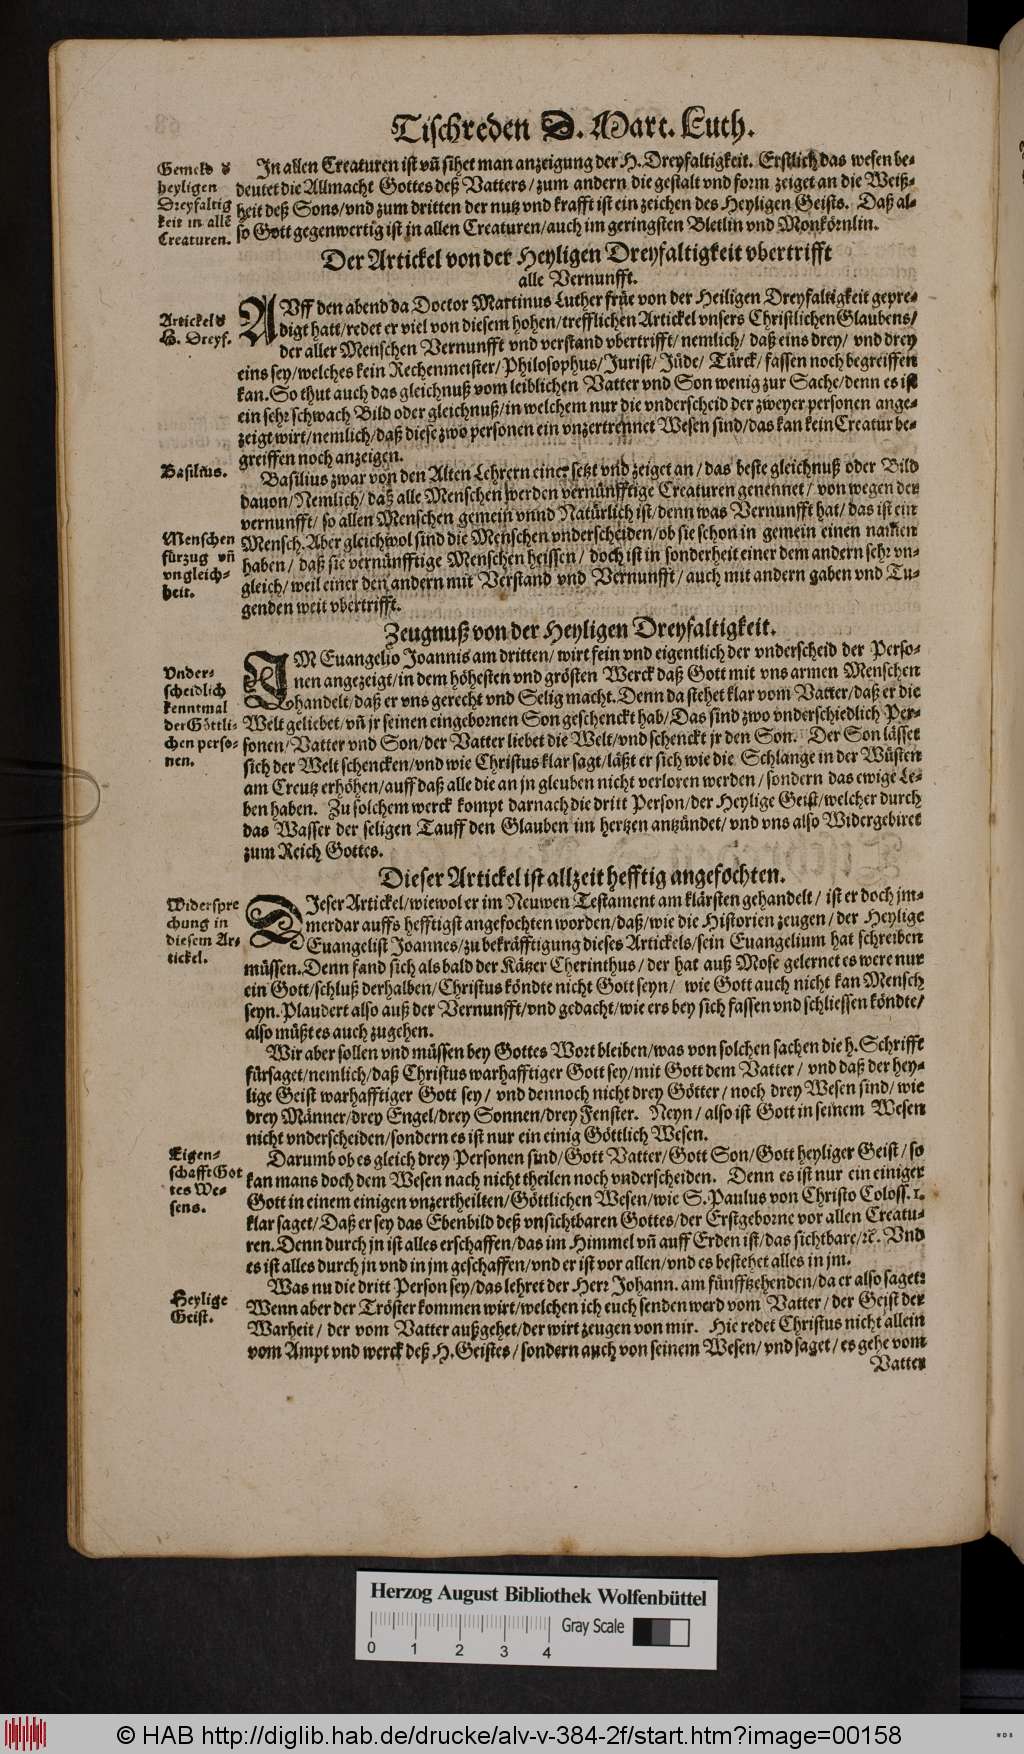 Tischreden D. Mart. Luth.
Gemeld d
heyligen
Dreyfaltig
keit in allē
Creaturen.
In allen Creaturen ist vñ sihet man anzeigung der H. Dreyfaltigkeit. Erstlich das wesen be-
deutet die Allmacht Gottes deß Vatters/ zum andern die gestalt vnd form zeiget an die Weiß-
heit deß Sons/ vnd zum dritten der nutz vnd krafft ist ein zeichen des Heyligen Geists. Daß al-
so Gott gegenwertig ist in allen Creaturen/ auch im geringsten Bletlin vnd Monkörnlin.
Der Artickel von der Heyligen Dreyfaltigkeit vbertrifft
alle Vernunfft.
Artickel d
H. Dreyf.
AVff den abend da Doctor Martinus Luther früe von der Heiligen Dreyfaltigkeit gepre-
digt hatt/ redet er viel von diesem hohen/ trefflichen Artickel vnsers Christlichen Glaubens/
der aller Menschen Vernunfft vnd verstand vbertrifft/ nemlich/ daß eins drey/ vnd drey
eins sey/ welches kein Rechenmeister/ Philosophus/ Jurist/ Jüde/ Türck/ fassen noch begreiffen
kan. So thut auch das gleichnuß vom leiblichen Vatter vnd Son wenig zur Sache/ denn es ist
ein sehr schwach Bild oder gleichnuß/ in welchem nur die vnderscheid der zweyer personen ange-
zeigt wirt/ nemlich/ daß diese zwo personen ein vnzertrennet Wesen sind/ das kan kein Creatur be-
greiffen noch anzeigen.
Basilius.
Basilius zwar von den Alten Lehrern einer setzt vnd zeiget an/ das beste gleichnuß oder Bild
dauon/ Nemlich/ daß alle Menschen werden vernünfftige Creaturen genennet/ von wegen der
vernunfft/ so allen Menschen gemein vnnd Natürlich ist/ denn was Vernunfft hat/ das ist ein
Menschen
fürzug vñ
vngleich-
heit.
Mensch. Aber gleichwol sind die Menschen vnderscheiden/ ob sie schon in gemein einen namen
haben/ daß sie vernünfftige Menschen heissen/ doch ist in sonderheit einer dem andern sehr vn-
gleich/ weil einer den andern mit Verstand vnd Vernunfft/ auch mit andern gaben vnd Tu-
genden weit vbertrifft.
Zeugnuß von der Heyligen Dreyfaltigkeit.
Vnder-
scheidlich
kenntmal
der Göttli-
chen perso-
nen.
IM Euangelio Joannis am dritten/ wirt fein vnd eigentlich der vnderscheid der Perso-
nen angezeigt/ in dem höhesten vnd grösten Werck daß Gott mit vns armen Menschen
handelt/ daß er vns gerecht vnd Selig macht. Denn da stehet klar vom Vatter/ daß er die
Welt geliebet/ vñ jr seinen eingebornen Son geschenckt hab/ Das sind zwo vnderschiedlich Per-
sonen/ Vatter vnd Son/ der Vatter liebet die Welt/ vnd schenckt jr den Son. Der Son lässet
sich der Welt schencken/ vnd wie Christus klar sagt/ läßt er sich wie die Schlange in der Wüsten
am Creutz erhöhen/ auff daß alle die an jn gleuben nicht verloren werden/ sondern das ewige Le-
ben haben. Zu solchem werck kompt darnach die dritt Person/ der Heylige Geist/ welcher durch
das Wasser der seligen Tauff den Glauben im hertzen antzündet/ vnd vns also Widergebiret
zum Reich Gottes.
Dieser Artickel ist allzeit hefftig angefochten.
Widerspre
chung in
diesem Ar-
tickel.
DJeser Artickel/ wiewol er im Neuwen Testament am klärsten gehandelt/ ist er doch jm-
merdar auffs hefftigst angefochten worden/ daß/ wie die Historien zeugen/ der Heylige
Euangelist Joannes/ zu bekräfftigung dieses Artickels/ sein Euangelium hat schreiben
müssen. Denn fand sich als bald der Kätzer Cherinthus/ der hat auß Mose gelernet es were nur
ein Gott/ schluß derhalben/ Christus köndte nicht Gott seyn/ wie Gott auch nicht kan Mensch
seyn. Plaudert also auß der Vernunfft/ vnd gedacht/ wie ers bey sich fassen vnd schliessen köndte/
also müßt es auch zugehen.
Wir aber sollen vnd müssen bey Gottes Wort bleiben/ was von solchen sachen die h. Schrifft
fürsaget/ nemlich/ daß Christus warhafftiger Gott sey/ mit Gott dem Vatter/ vnd daß der hey-
lige Geist warhafftiger Gott sey/ vnd dennoch nicht drey Götter/ noch drey Wesen sind/ wie
drey Männer/ drey Engel/ drey Sonnen/ drey Fenster. Neyn/ also ist Gott in seinem Wesen
nicht vnderscheiden/ sondern es ist nur ein einig Göttlich Wesen.
Eigen-
schafft Got
tes We-
sens.
Darumb ob es gleich drey Personen sind/ Gott Vatter/ Gott Son/ Gott heyliger Geist/ so
kan mans doch dem Wesen nach nicht theilen noch vnderscheiden. Denn es ist nur ein einiger
Gott in einem einigen vnzertheilten/ Göttlichen Wesen/ wie S. Paulus von Christo Coloss. 1.
klar saget/ Daß er sey das Ebenbild deß vnsichtbaren Gottes/ der Erstgeborne vor allen Creatu-
ren. Denn durch jn ist alles erschaffen/ das im Himmel vñ auff Erden ist/ das sichtbare/ ꝛc. Vnd
es ist alles durch jn vnd in jm geschaffen/ vnd er ist vor allen/ vnd es bestehet alles in jm.
Heylige
Geist.
Was nu die dritt Person sey/ das lehret der Herr Johann. am fünfftzehenden/ da er also saget:
Wenn aber der Tröster kommen wirt/ welchen ich euch senden werd vom Vatter/ der Geist der
Warheit/ der vom Vatter außgehet/ der wirt zeugen von mir. Hie redet Christus nicht allein
vom Ampt vnd werck deß H. Geistes/ sondern auch von seinem Wesen/ vnd saget/ es gehe vom
Vatter
Herzog August Bibliothek Wolfenbüttel
Gray Scale
0 1 2 3 4
© HAB http://diglib.hab.de/drucke/alv-v-384-2f/start.htm?image=00158